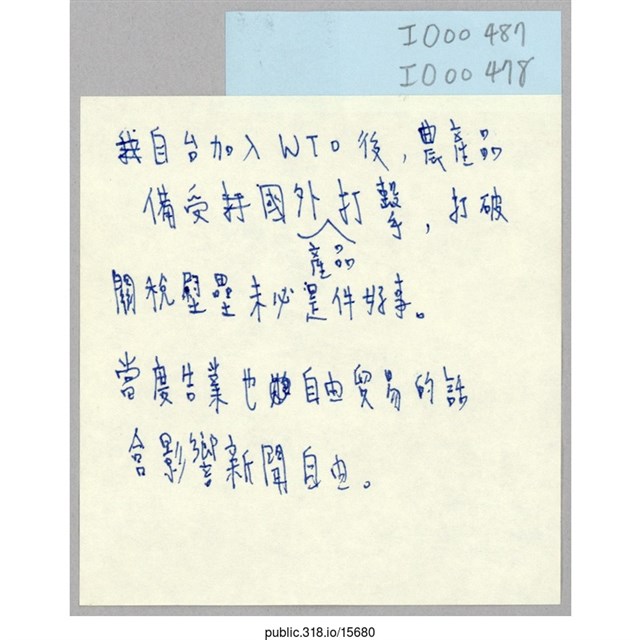 IO00 487
IO00 478
我自台加入WTO後，農產品
備受國外產品打擊，打破
關稅壁壘未必是件好事。
當廣告業也自由貿易的話
會影響新聞自由。
public.318.io/15680